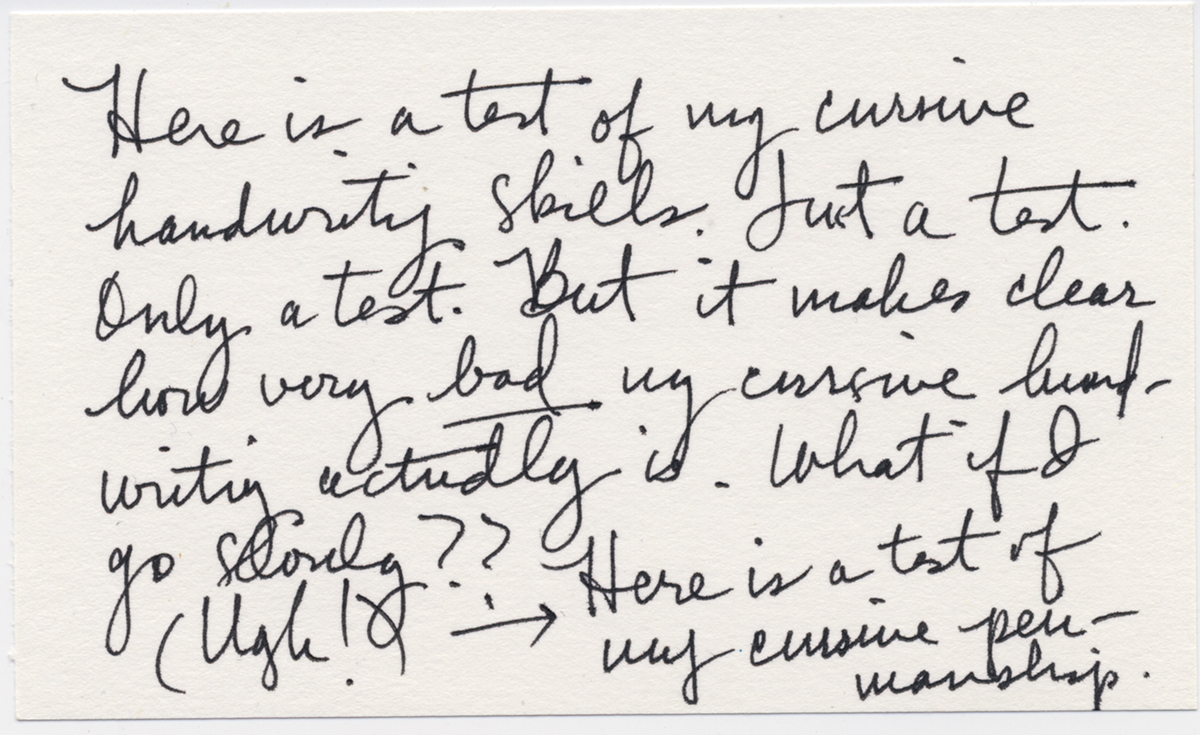 Here is a test of my cursive
handwriting skills. Just a test.
Only a test. But it makes clear
how very bad my cursive hand-
writing actually is. What if I
go slowly??
(Ugh!) → Here is a test of
my cursive pen-
manship.